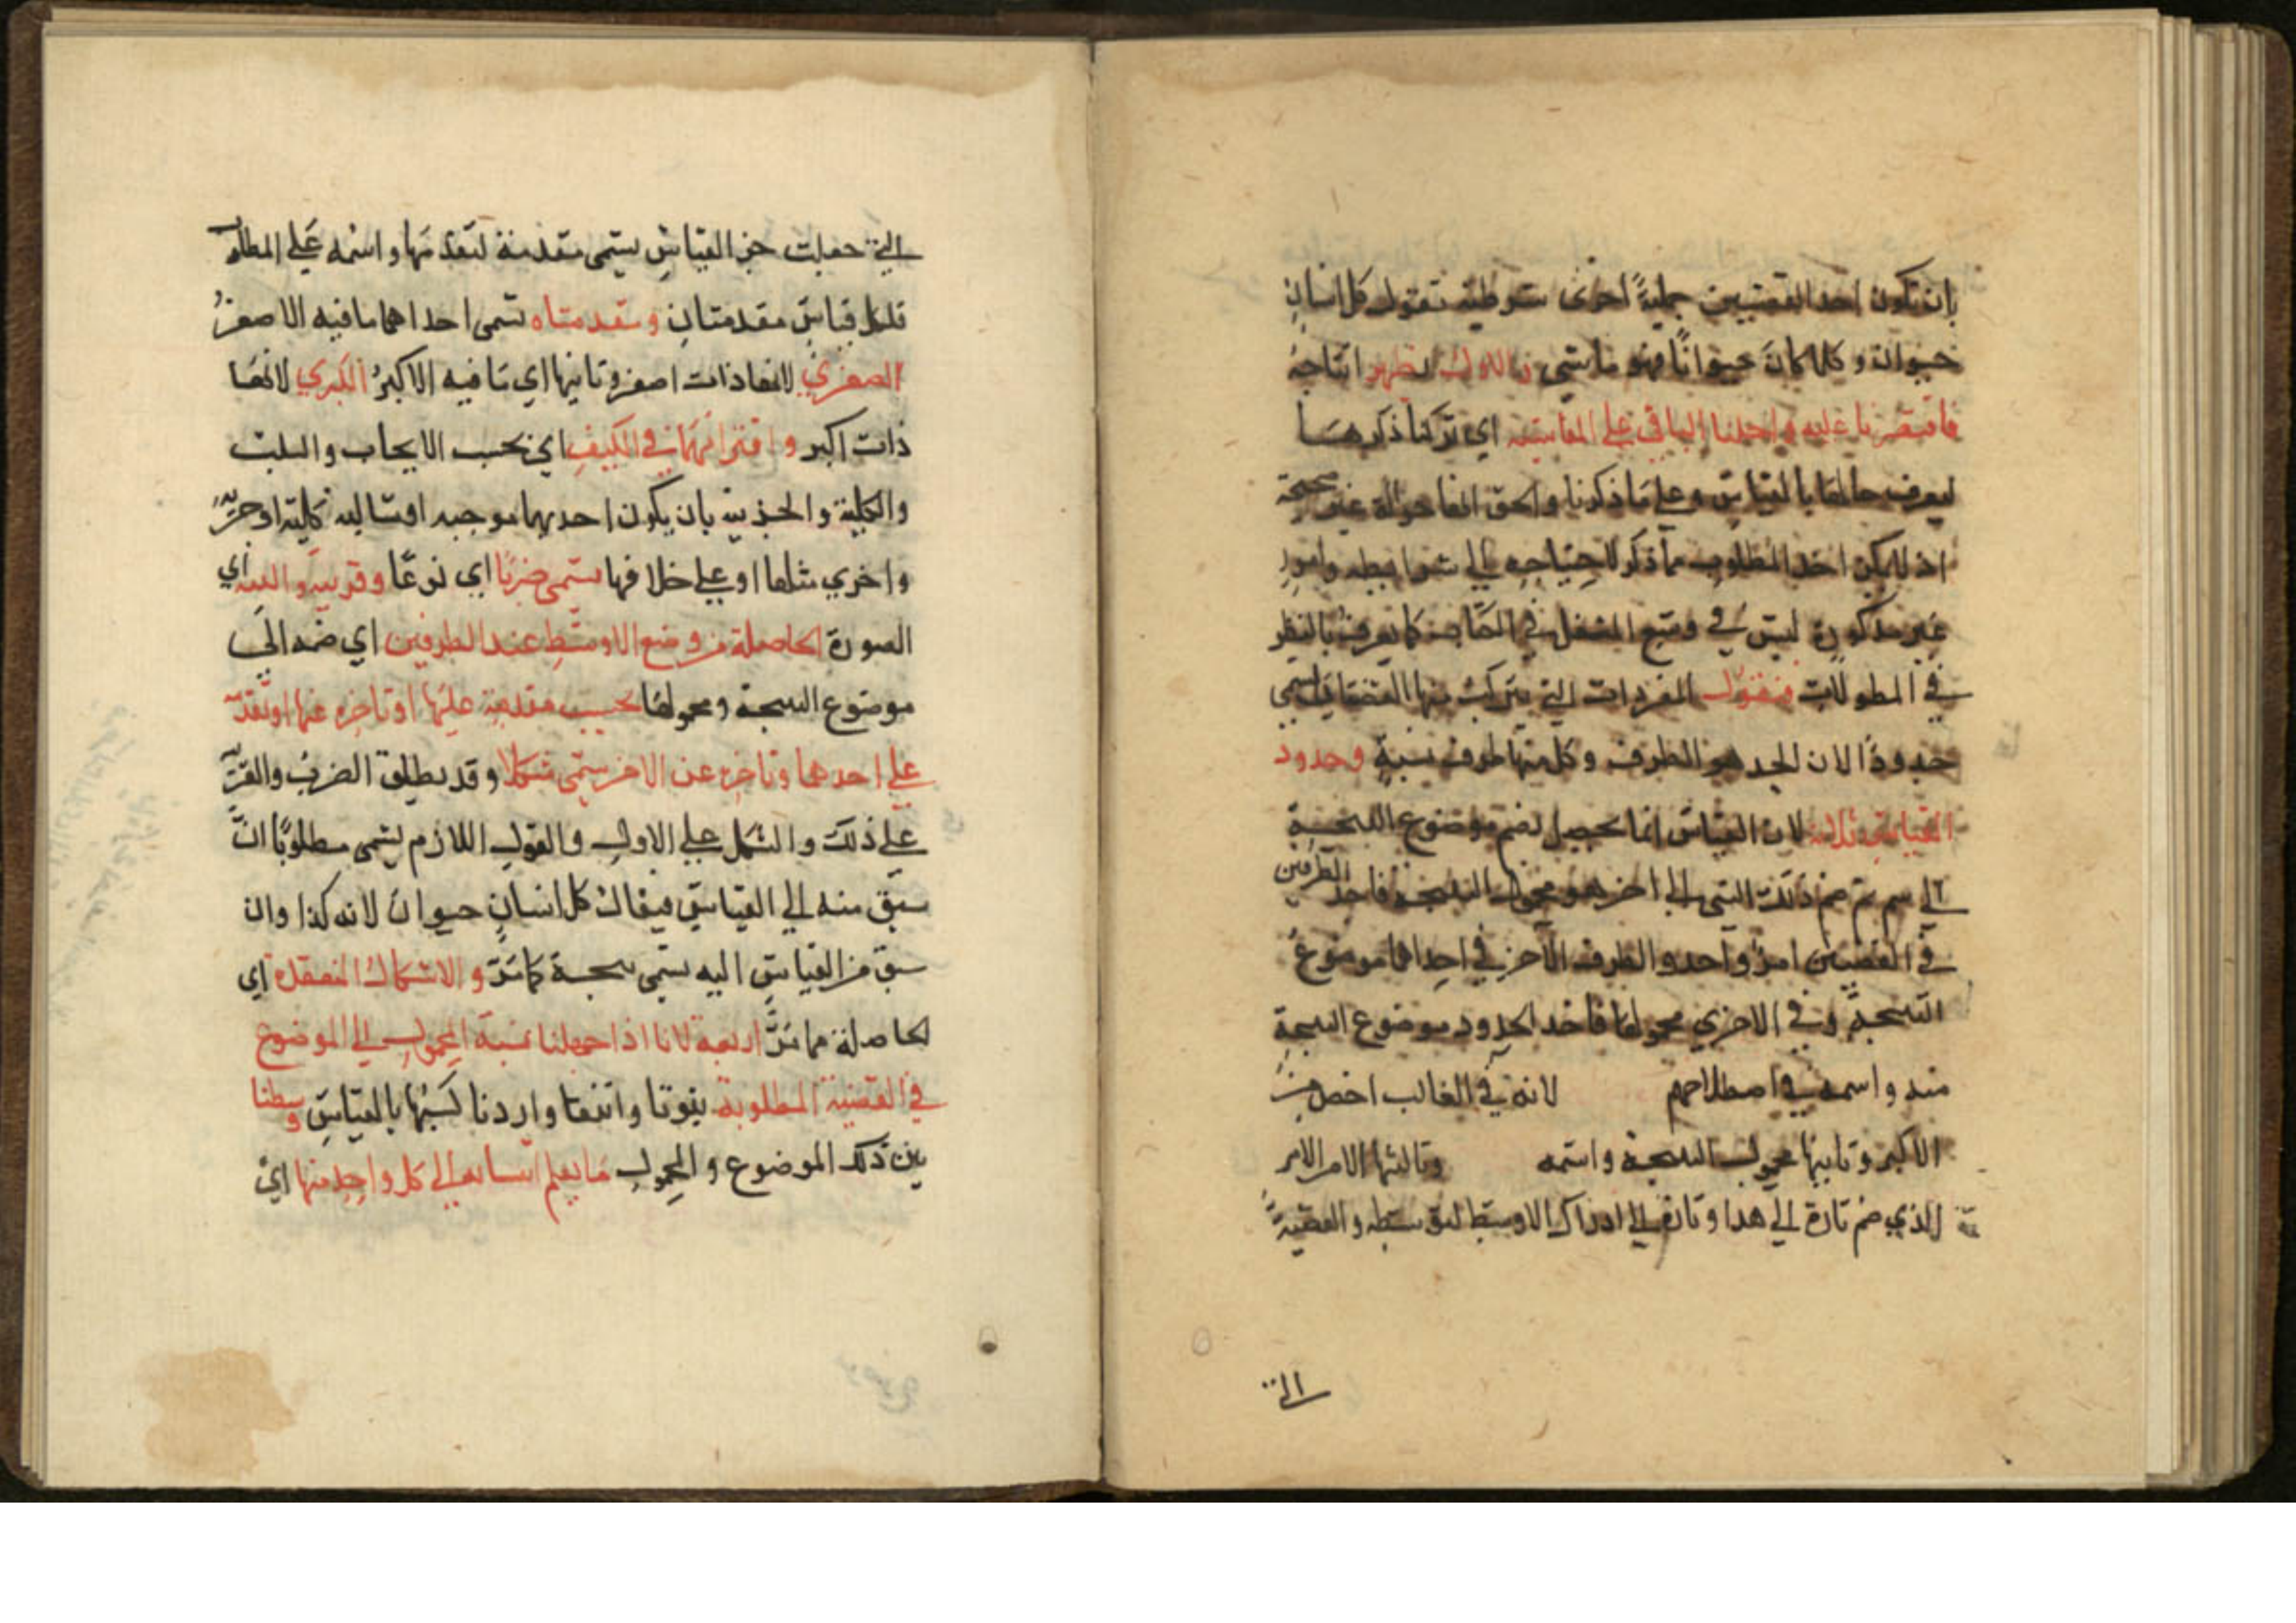 بان تكون احد القضيتين حملية اخرى شرطية تقول كل انسان
حيوان وكلما كان حيوانا فهو ماشي والاول لظهر انتاجه
فاقتصرنا عليه واحلنا الباقي على المقايسة اي تركنا ذكرهسا
ليعرف حالها بالقياس وعلى ما ذكرنا والحق انها حوالة غير صحيحة
اذ لا يمكن اخذ المطلوب مما ذكر لاحتياجه الى شرايطه وامور
غير مذكورة ليس في وسع المشغل في الكتاب كما يعرف بالنظر
في المطولات فنقول المفردات التي يتركب منها القضايا تسمى
حدودا لان الحد هو الطرف وكل منها طرف نسبة وحدود
القياس ثلاثة لان القياس انما يحصل لضم موضوع النتيجة
الى ثم ضم ذلك الشي الى اخر هو محمول النتيجة فاحد الطرفين
في القضيتين امر واحد والطرف الآخر في احداهما موضوع
النتيجة وفي الاخرى محمولها فاحد الحدود موضوع النتيجة
منه واسمه في اصطلاحهم لانه في الغالب اخص من
الاكبر وثانيها محمول النتيجة واسمه وثالثها الامر الامر
الذي ضم تارة الى هذا وتارة الى اذاك الاوسط لتوسطه والقضية
التي
التي جعلت جز القياس يسمى مقدمة لتقدمها واسمه على المطلوب
فلكل قياس مقدمتان ومقدمتاه تسمى احداهما ما فيه الاصغر
الصغرى لانها ذات اصغر وثانيها اي ما فيه الاكبر الكبرى لانها
ذات اكبر واقترانهما في الكيف اي بحسب الايجاب والسلب
والكلية والجزيية بان يكون احديهما موجبه او سالبه كلية او جزية
واخرى مثلها او على خلافها يسمى ضربا اي نوعا وقرينة والهيئة اي
الصورة الحاصلة من وضع الاوسط عند الطرفين اي ضمه الى
موضوع النتيجة ومحمولها بحسب مقدمة عليها او تاخره عنها او تقدمه
على احدهما وتاخره عن الاخر يسمى شكلا وقد يطلق الضرب والقرينة
على ذلك والشكل على الاول والقول اللازم يسمى مطلوبا ان
سبق منه الى القياس فيقال كل انسان حيوان لانه كذا وان
سبق من القياس اليه يسمى نتيجة كما مر والاشكال المنعقدة اي
الحاصلة مما مر اربعة لانا اذا جهلنا نسبة المحمول الى الموضوع
في القضية المطلوبة بثبوتا وانتفا واردنا كسبها بالقياس وسطنا
بين ذلك الموضوع والمحمول ما يعلم انتسابه الى كل واحد منها اي